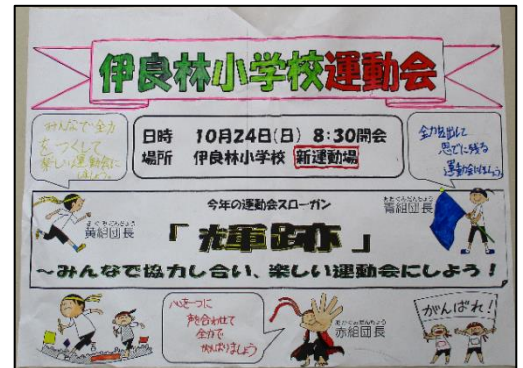 伊良林小学校運動会
みんなで全力
をつくして
楽しい運動会に
しましょう
日時 10月24日(日) 8:30開会
場所 伊良林小学校 新運動場
全力を出して
思でに残る
運動会にしましょう
今年の運動会スローガン
きぐみだんちょう
黄組団長
あおぐみだんちょう
青組団長
「輝跡」
～みんなで協力し合い、楽しい運動会にしよう!
心を一つに
声を合わせて
全力で
がんばりましょう
あかぐみだんちょう
赤組団長
がんばれ!